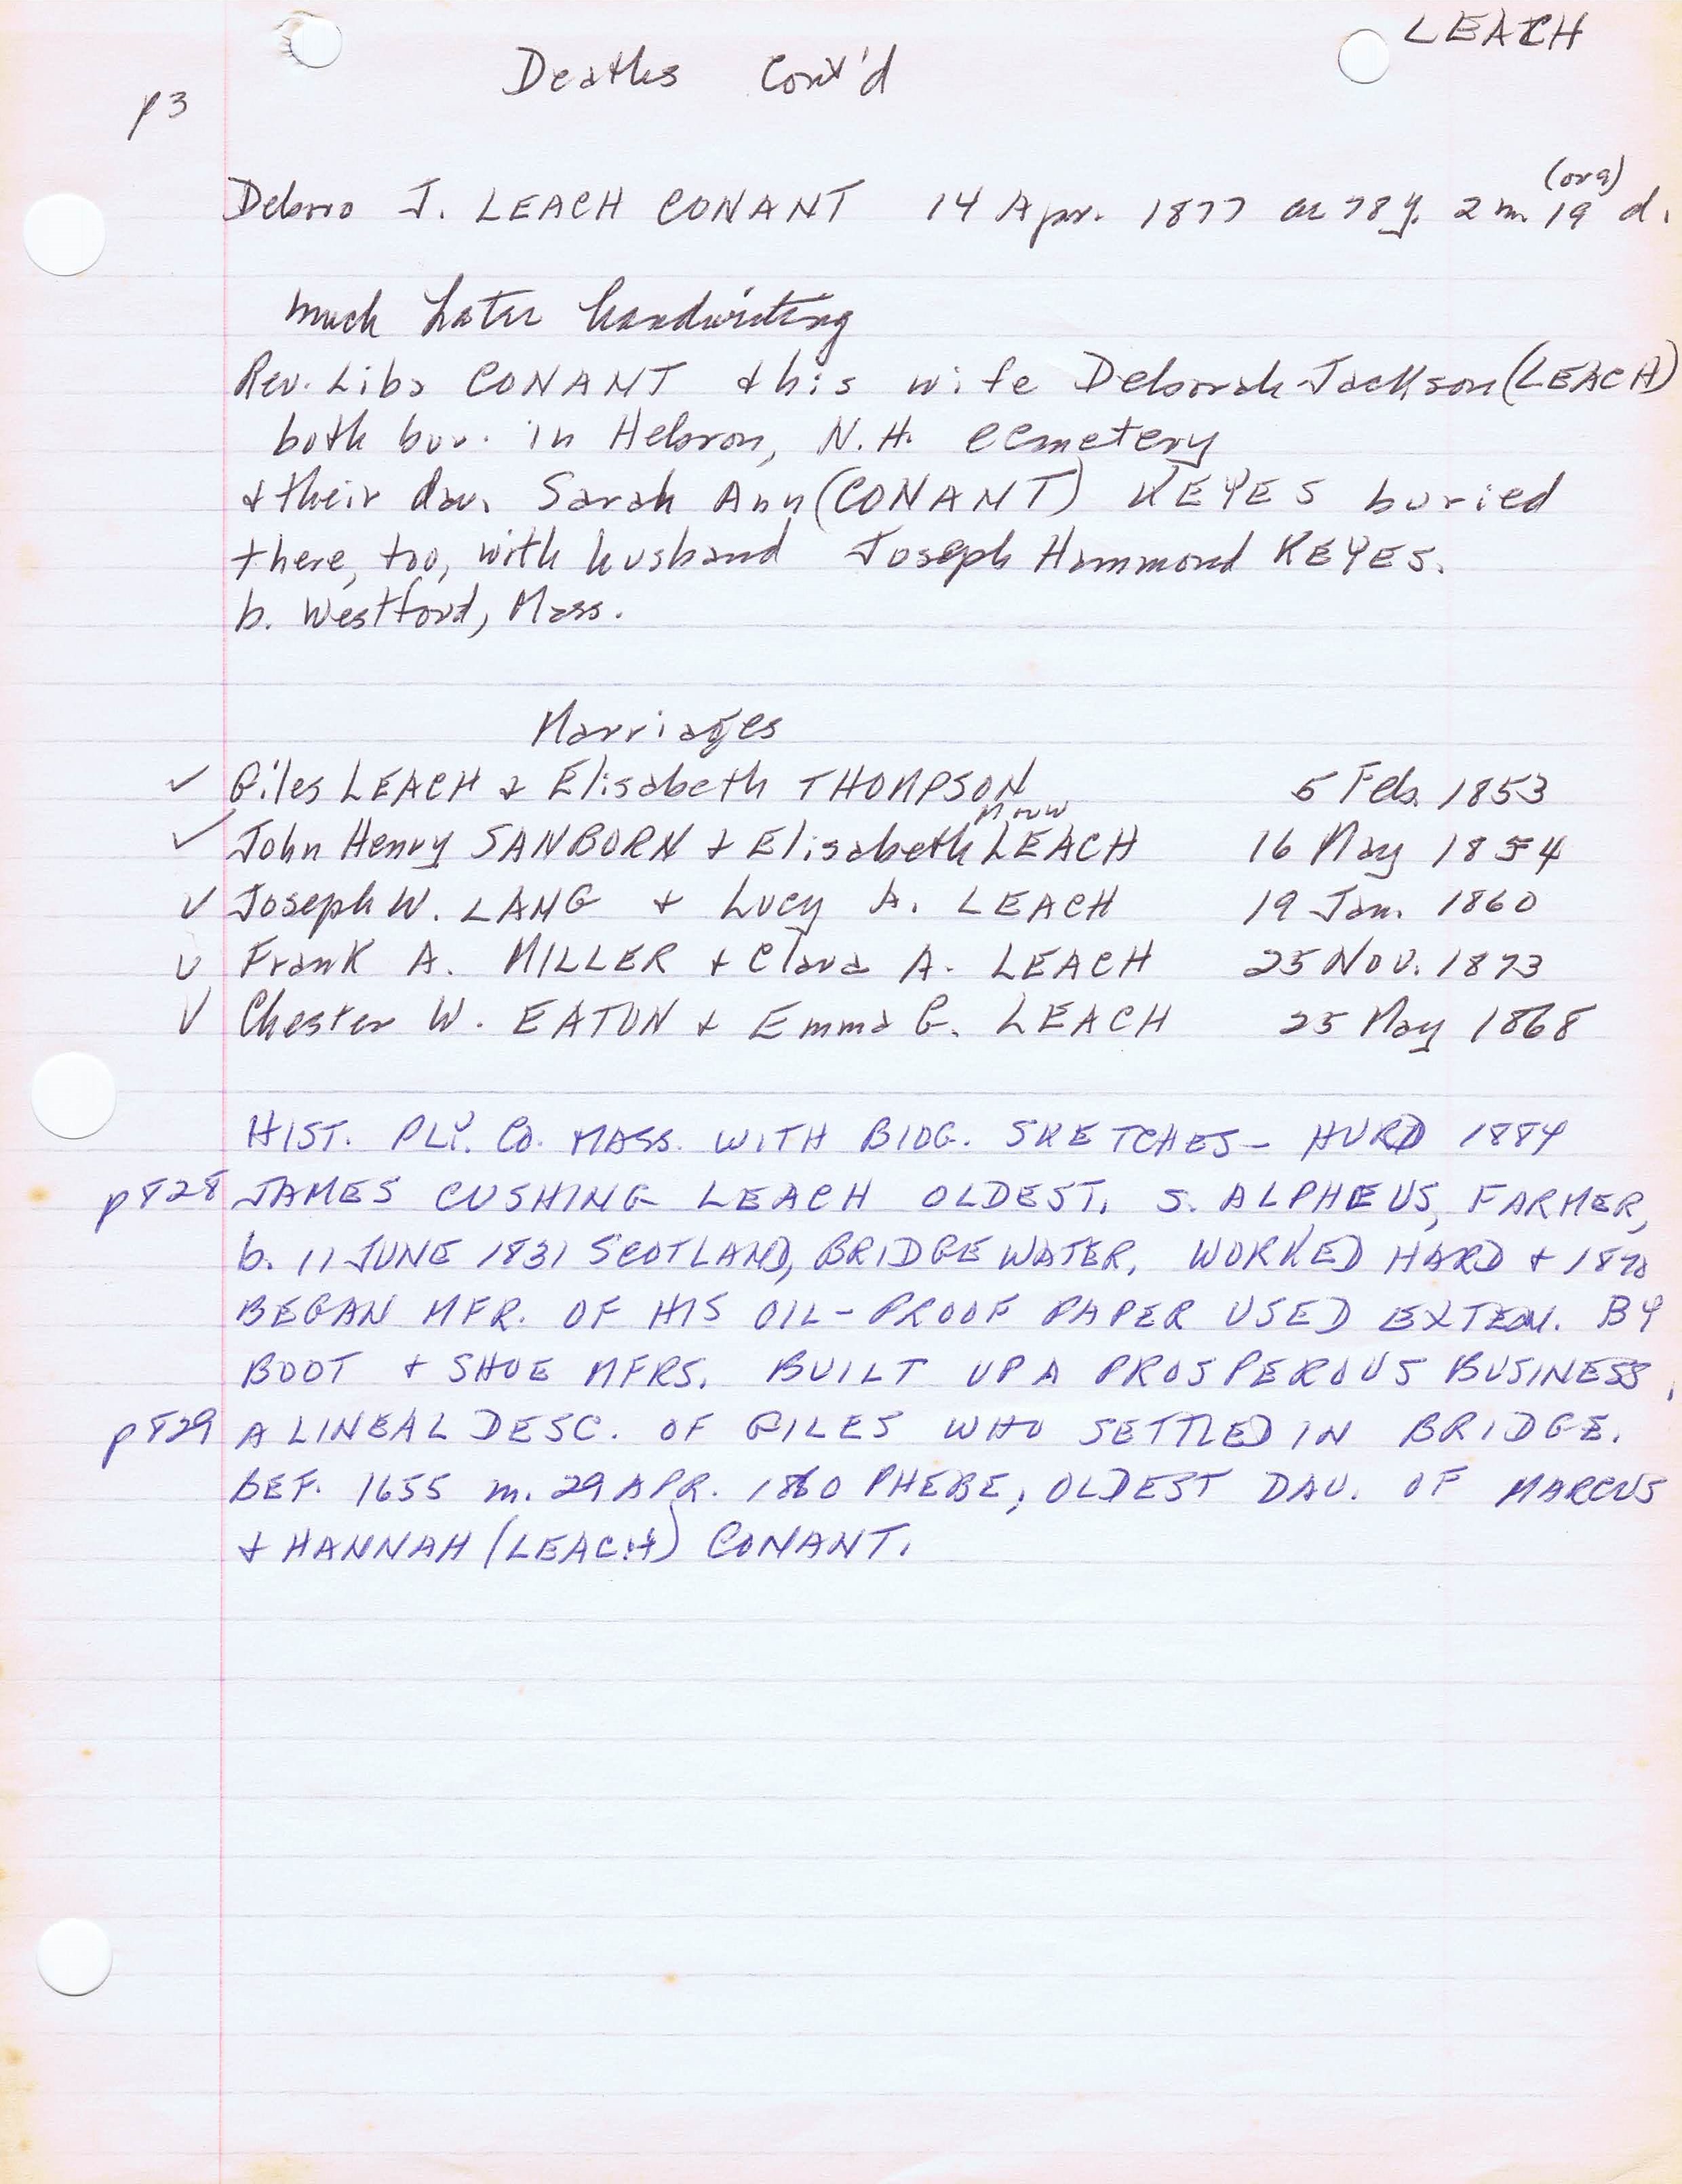 LEACH
Deaths Cont'd
p3
(or 9)
Deboro J. LEACH CONANT 14 Apr. 1877 ae 78 y. 2 m. 19 d.
much Later handwriting
Rev. Liba CONANT & his wife Deborah Jackson (LEACH)
both bur. in Hebron, N.H. cemetery
& their dau. Sarah Ann (CONANT) KEYES buried
there, too, with husband Joseph Hammond KEYES.
b. Westford, Mass.
Marriages
✓ Giles LEACH & Elisabeth THOMPSON 5 Feb. 1853
✓ John Henry SANBORN & Elisabeth LEACH 16 May 1854
✓ Joseph W. LANG & Lucy A. LEACH 19 Jan. 1860
✓ Frank A. MILLER & Clara A. LEACH 25 Nov. 1873
✓ Chester W. EATON & Emma G. LEACH 25 May 1868
HIST. PLY. Co. MASS. WITH BIOG. SKETCHES - HURD 1884
p828 JAMES CUSHING LEACH OLDEST. S. ALPHEUS, FARMER,
b. 11 JUNE 1831 SCOTLAND, BRIDGEWATER, WORKED HARD & 1870
BEGAN MFR. OF HIS OIL-PROOF PAPER USED EXTEN. BY
BOOT & SHOE MFRS. BUILT UP A PROSPEROUS BUSINESS.
p829 A LINEAL DESC. OF GILES WHO SETTLED IN BRIDGE.
BEF. 1655 m. 29 APR. 1860 PHEBE, OLDEST DAU. OF MARCUS
& HANNAH (LEACH) CONANT.